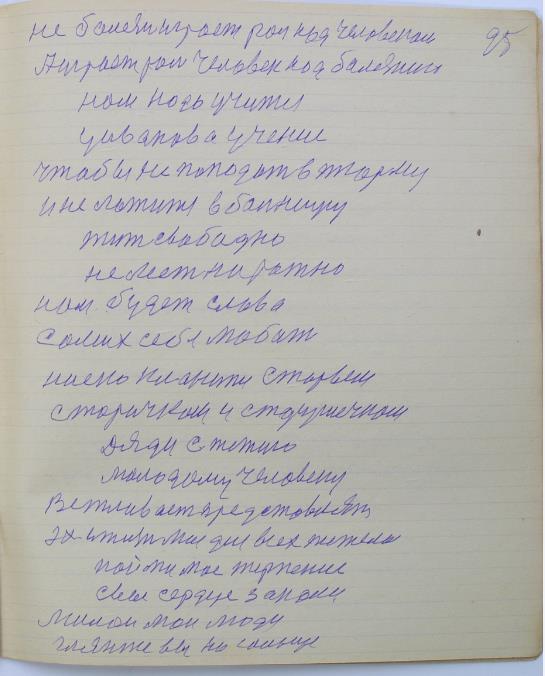 95
не болезн играет рол над человеком
А играет рол человек над болезнию
нам надо учится
у иванова учение
чтобы не поподат в тюрму
и не ложится в болницу
жит свабадно
не лест на ражно
нам будет слова
самих себя любит
на ето планити старвем
старичком и старушечком
дяди с тетию
молодому человеку
Вежливаст предстовлят
эх стихи мои для всех тяжела
пойми мое терпение
свое сердце закали
милои мои люди
гляньте вы на солнце